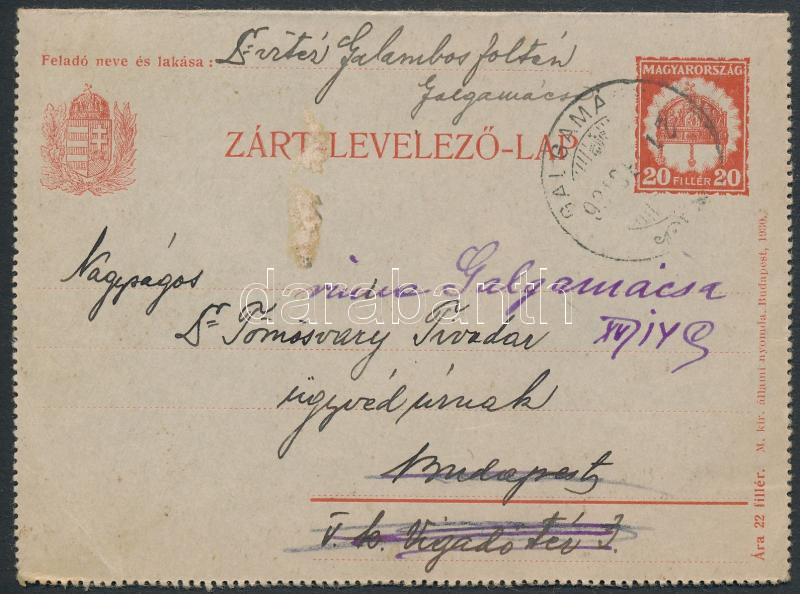 Feladó neve és lakása : Dr vitéz Galambos Zoltán
Galgamácsa
MAGYARORSZÁG
20 FILLÉR 20
ZÁRT LEVELEZŐ-LAP
GALGAMÁ
Nagyságos
vissza Galgamácsa
Dr Tömösváry Tivadar
ügyvéd úrnak
Budapest
V. k. Vigadó tér 3.
Ára 22 fillér. M. kir. állami nyomda. Budapest, 1930.
darabanth